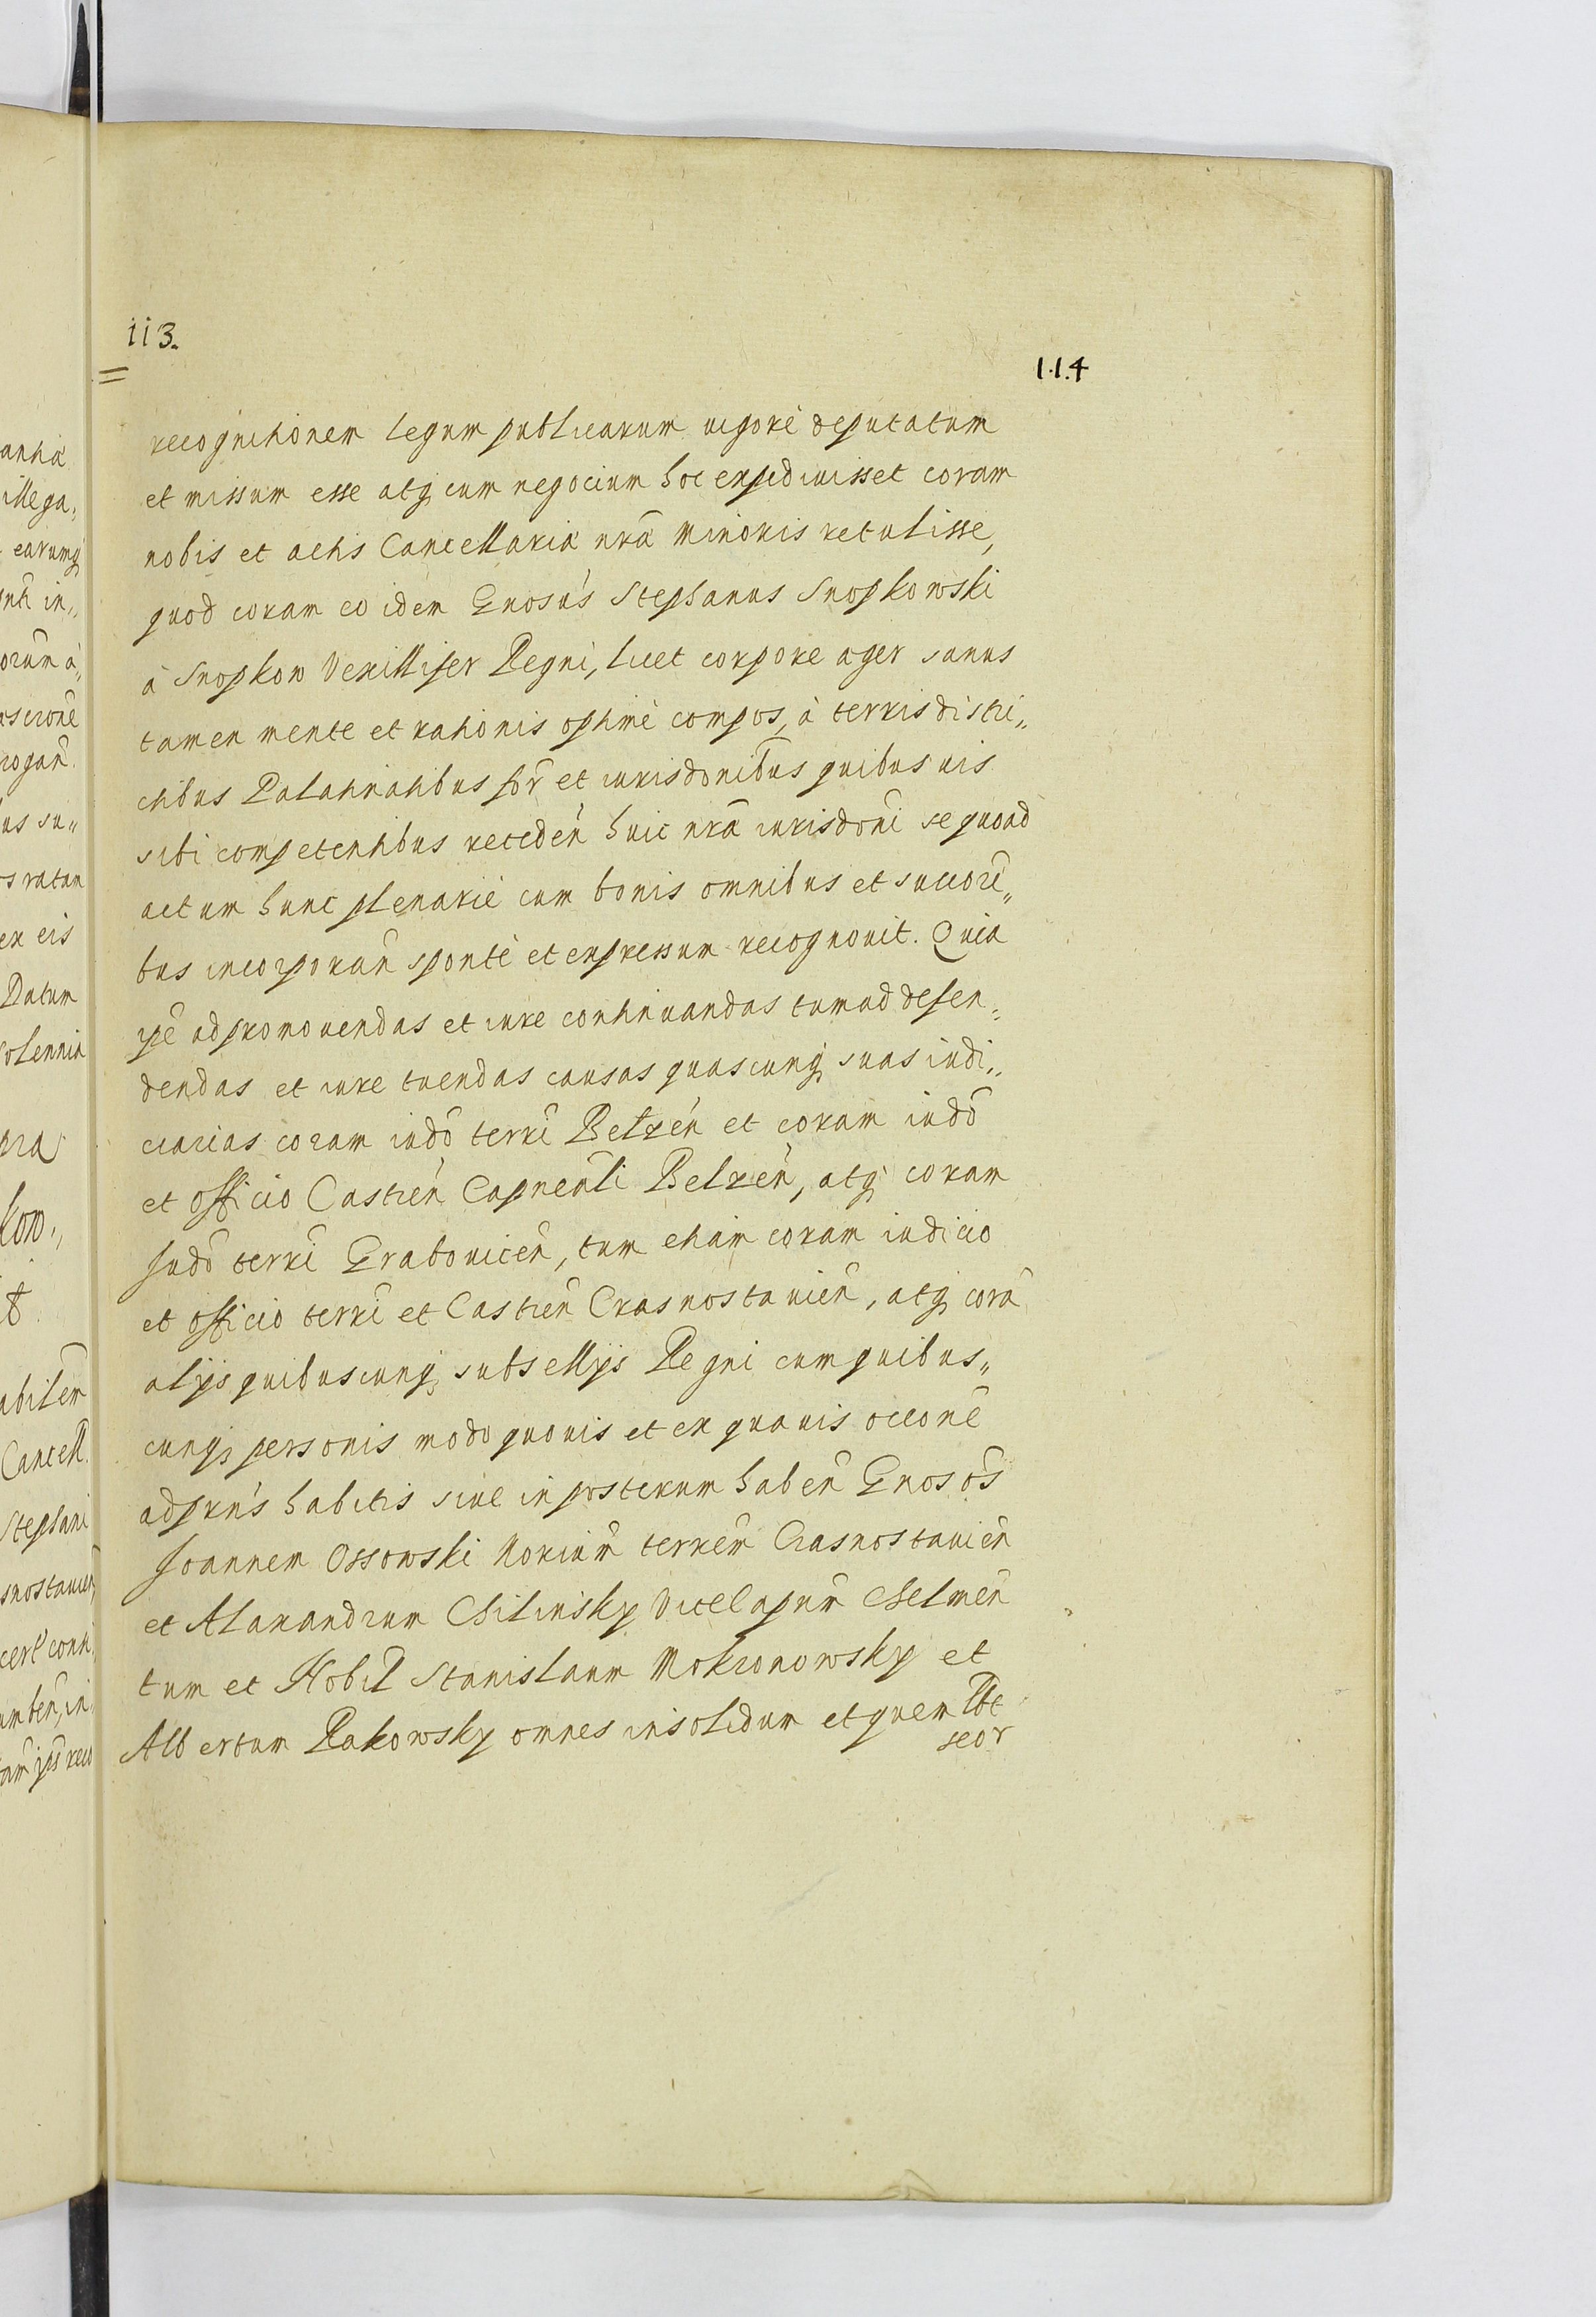 113.
1.1.4
recognitionem legum publicarum uigorè deputatum
et missum esse atq; cum negocium hoc expediuisset coram
nobis et actis Cancellariæ nrã Minoris retulisse,
quod coram eo idem Gnosus Stephanus Snopkowski
à Snopkow Vexillifer Regni, licet corpore æger sanus
tamen mente et rationis optimè compos, à terris distri„
ctibus Palatinatibus for̃ et iurisdonibus quibusuis
sibi competentibus receden̄ huic nrã iurisdoni se quoad
actum hunc plenariè cum bonis omnibus et succori„
bus incorporan̄ spontè et expressum recognouit. Quia
ipē ad promouendas et iure continuandas tum ad defen„
dendas et iure tuendas causas quascunq; suas iudi„
ciarias coram iudō terri Belzen̄ et coram iudō
et officio Castren̄ Capneali Belzen̄, atq; coram
Iudō terri Grabouicen̄, tum etiam coram iudicio
et officio terri et Castren̄ Crasnostauien̄, atq; corā
alijs quibuscunq; subsellijs Regni cum quibus„
cunq; personis modo quouis et ex quauis occone
ad prn̄s habitis siue in posterum haben̄ Gnosos
Joannem Ossowski Norium̄ terrem̄ Crasnostauien̄
et Alaxandrum Chilinsky Vicecapnm̄ Chelmen̄
tum et Nobil Stanislaum Mokronowsky et
Albertum Rakowsky omnes insolidum et quemlbt
seor
anha
illega„
earumq;
orum à„
ascione
rogan̄
us su„
s ratum
ex eis
Datum
solennia
kow„
abilem
Cancell.
Stephani
snostauien